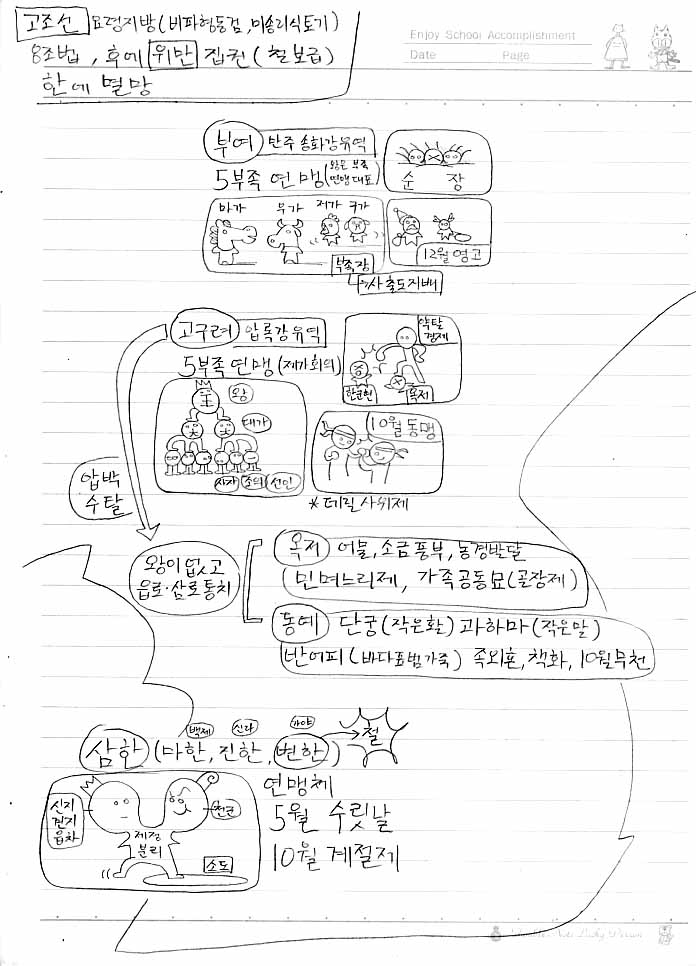 고조선 요령지방(비파형동검, 미송리식토기)
Enjoy School Accomplishment
Date Page
8조법, 후에 위만 집권(철보급)
한에 멸망
부여 만주 송화강유역
5부족 연맹(왕은 부족
연맹대표)
순 장
마가 우가 저가 구가
부족장
→사출도지배
12월 영고
고구려 압록강유역
5부족연맹(제가회의)
약탈
경제
한군현 옥저
왕
대가
사자 조의 선인
10월 동맹
*데릴사위제
압박
수탈
왕이 없고
읍군·삼로통치
옥저 어물,소금풍부,농경발달
민며느리제, 가족공동묘(골장제)
동예 단궁(작은활)과하마(작은말)
반어피(바다표범가죽) 족외혼,책화,10월무천
백제 신라 가야
삼한(마한,진한,변한)→철
신지
견지
읍차
제정
분리
천군
소도
연맹체
5월 수릿날
10월 계절제